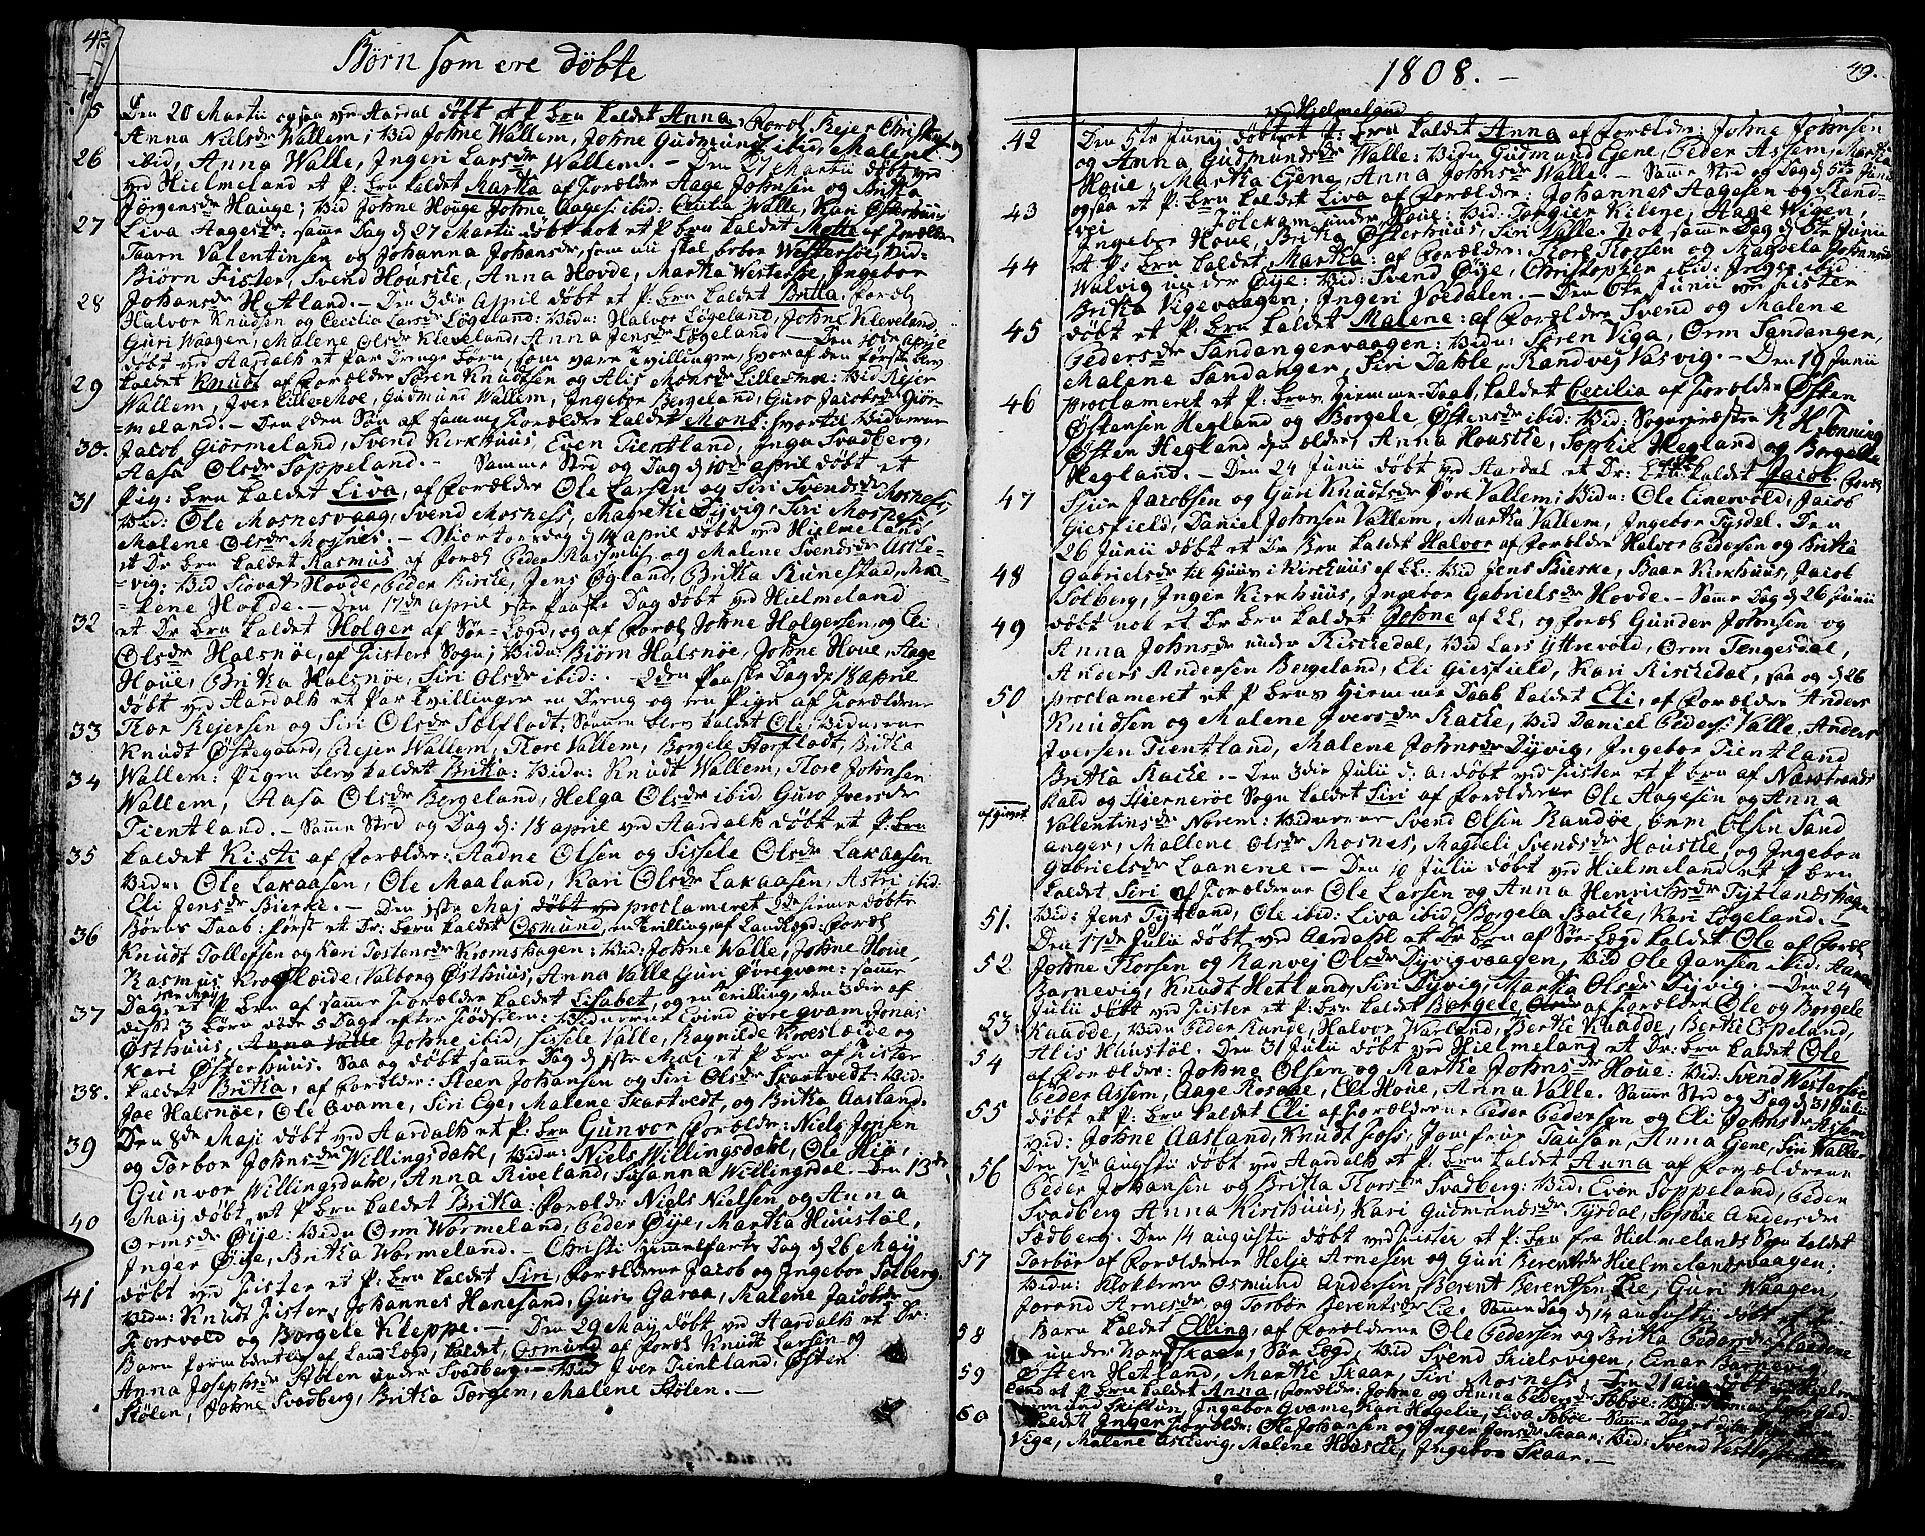 Børn som ere döbte
5 Den 20 Martii ogsaa ved Aardal döbt et P. brn kaldet Anna, Foræl. Rejer Christ
Anna Nielsdr Wallem; Bid Johne Wallem, Johne Gudmunds ibid, Malene
26 ibid, Anna Walle, Ingeri Larsdr Wallem. – Den 27 Martii döbt ved
ved Hielmeland et P: brn kaldet Martha af Forældre Aage Johnsen og Britha
Jørgensdr Hauge; Bid Johne Houge Johne Aages: ibid: Cecilia Walle, Kari Østerhuus
27 Liva Aagesdr: samme Dag d 27 Martii döbt nok et P brn kaldet Metta af Forældre
Taarn Valentinsen og Johanna Johansdr, som nu skal beboe Westersöe, Bid:
Biørn Fister, Svend Houstle, Anna Hovde, Martha Westersöe, Ingebor
28 Johansdr Hetland. – Den 3die April döbt et P: brn kaldet Britta, Foræl
Halvor Knudsen og Cecilia Larsdr Løgeland: Bidn: Halvor Løgeland, Johne Kleveland,
Guri Waagen, Malene Olsdr Kleveland, Anna Jensdr Løgeland – Den 10de April
döbt ved Aardalk et Par Drenge Børn, som vare Tvillinger, hvoraf den förste blev
29 kaldet Knudt af Forældre Sören Knudtsen og Alis Monsdr Lillesmoe: Bid Rejer
Wallem, Iver Lillemoe, Gudmund Wallem, Ingebor Bergeland, Guro Jacobsdr Giør-
=meland. Den 2den Søn af samme Forældre kaldet Mons: hvortil Bidn:
30. Jacob Giørmeland, Svend Kirkhuus, Even Tientland, Inga Svadberg,
Aasa Olsdr Soppeland. – Samme Sted og Dag d 10de april döbt et
31 Pig: brn kaldet Liva, af Forældre Ole Larsen og Siri Svendsdr Mosness
Bid: Ole Mosnesvaag, Svend Mosness, Marethe Dyvig, Siri Mosness,
Malene Olsdr Mosnes. – Skiertorsdag d 14 april döbt ved Hielmeland
et Dr brn kaldet Rasmus af Foræl Peder Rasmus: og Malene Svendsdr Astle-
vig: Bid Sivat Hovde, Peder Kirke, Jens Øgland, Britha Runestad, Ma-
=lene Hovde. – Den 17de april 1ste Paaske Dag döbt ved Hielmeland
32 et Dr brn kaldet Holger af Sør-Legd, og af Foræl Johne Holgersen, og Eli
Olsdr Halsnöe, af Fister Sogn; Bidn: Biørn Halsnöe, Johne Houe, Aage
Houe, Britha Halsnöe, Siri Olsdr ibid: – 2den Paaske Dag d 18 april
döbt ved Aardalk et Par Tvillinger en Dreng og en Pige af Forældrene
33 Thor Rejersen og Siri Olsdr Sælfladt: Sønnen blev kaldet Ole: Bidn:
Knudt Østegaard, Rejer Wallem, Thore Vallem, Borgele Storfladt, Britha
34 Wallem: Pigen blev kaldet Britha: Bidn: Knudt Wallem, Thore Johnsen
Wallem, Aasa Olsdr Bergeland, Helga Olsdr ibid Guro Iversdr
Tientland. – Samme Sted og Dag d: 18 april ved Aardalk döbt et P: brn
35 kaldet Kisti af Forældre: Aadne Olsen og Sissele Olsdr Lakaasen
Bidn: Ole Lakaasen, Ole Maaland, Kari Olsdr Lakaasen, Astri ibid:
Eli Jensdr Bierke. – Den 1ste Maj döbt ved proclameret 2de hieme döbte
Börns Daab: först et Dr: brn kaldet Osmund, en Trilling, af Landlegd: Foræl
36 Knudt Tollefsen og Kari Tostensdr Kromshagen: Bid: Johne Walle, Johne Houe,
Rasmus Kroglæide, Valborg Østhuus, Anna Valle, Guri Øvreqvam: samme
Dag, et P brn af samme Forældre kaldet Lisabet, og en Trilling, den 3die af
37 disse 3 Børn døde 5 Dage efter Fødselen: Bidn: Evind Øvreqvam Jonas
Østhuus, Anna Valle Johne ibid, Sissele Valle, Ragnilde Kroeslæide og
Kari Østerhuus. Saa og döbt samme Dag d 1ste Maj et P brn af Fister
38. kaldet Britha, af Forældre: Steen Johansen og Siri Olsdr Skartvedt: Bid:
Joe Halsnöe, Ole Qvame, Siri Ege, Malene Skartvedt, og Britha Aasland.
Den 8de Maji döbt ved Aardalk et P: brn Gunvor Forældr: Niels Jensen
39 og Torbor Johnsdr Willingsdahl, Bidn: Niels Willingsdahl, Ole Riö,
Gunvor Willingsdahl, Anna Riveland, Susanna Willingsdal – Den 13de
Maij döbt et P: brn kaldet Britha: Foræld: Niels Nielsen og Anna
40 Ormsdr Øije: Bidn Orm Wormeland, Peder Øije, Martha Huustöl,
Inger Øije, Britha Wormeland. – Christi Himmelfarts Dag d 26 Maij
döbt ved Fister et P: brn kaldet Siri, Forældrene Jacob og Ingebor Solberg.
41 Bidn: Knudt Fister, Johannes Hanesand, Guri Garaa, Malene Jacobsdr
Forsvold og Borgele Kleppe. – Den 29 Maij döbt ved Aardalk et Dr:
Barn formedentlig af Land Legd, kaldet Osmund af Foræl Knudt Larsen og
Anna Josephsdr Stölen under Svadberg – Bid Iver Tientland, Østen
Stölen, Johne Svadberg, Britha Torgen, Malene Stölen. –
1808. –
49.
ved Hielmeland
42 Den 5te Junii döbt et P: brn kaldet Anna af Forældre: Johne Johnsen
og Anna Gudmundsdr Walle: Bidn Gudmund Gene, Peder Assem, Martha
Houe, Martha Gene, Anna Johnsdr Walle. – Samme Sted og Dag d 5te Junii
43 ogsaa et P: brn kaldet Liva af Forældre: Johannes Aagesen og Rand-
vei Solekam under Houe: Bid: Torgier Kilene, Aage Wigen,
Ingebor Houe, Britha Østerhuus, Siri Valle. Nok samme Dag d 5te Junii
44 et P: brn kaldet Martha: af Forældre: Thore Thorsen og Magdela Johannesdr
Walvig under Øije: Bid: Svend Øije, Christopher ibid: Inger ibid
Britha Vigevaagen, Ingeri Voedalen. – Den 6te Junii ved Fister
45 döbt et P: brn kaldet Malene: af Forældre Svend og Malene
Pedersdr Sandangervaagen: Bidn: Sören Viga, Orm Sandanger,
Malene Sandanger, Siri Dahle, Randvej Vasvig. – Den 19 Junii
46 proclameret et P: brns Hiemme-Daab, kaldet Cecilia af Forældre Østen
Østensen Hegland og Borgele Østensdr ibid: Bid: Sogepræsten N H Tönning
Østen Hegland den ældre, Anna Houstle, Sophie Hegland og Borgele
Hegland. – Den 24 Junii döbt ved Aardal et Dr: brn kaldet Jacob, Foræl
47 Siur Jacobsen og Guri Knudtsdr Øvre Vallem: Bidn: Ole Linevold, Jacob
Giesfield, Daniel Johnsen Vallem, Martha Vallem, Ingebor Tysdal. Den
26 Junii döbt et Dr brn kaldet Halvor af Forældre Halvor Pedersen og Britha
48 Gabrielsdr til Huus i Kirkhuus af LL: Bid Jens Bierke, Baar Kirkhuus, Jacob
Solberg, Inger Kirkhuus, Ingebor Gabrielsdr Hovde. – Samme Dag d 26 Junii
49 döbt nok et Dr brn kaldet Johne af LL, og Foræl Gunder Johnsen og
Anna Johnsdr under Riskedal, Bid Lars Yttrevold, Orm Tengesdal,
Anders Andersen Bergeland, Eli Giesfield, Kari Riskedal, saa og d 26
50 proclameret et P brns Hiemme Daab kaldet Eli, af Forældre Anders
Knudsen og Malene Iversdr Backe, Bid Daniel Peders: Valle, Anders
Iversen Tientland, Malene Johnsdr Dyvig, Ingebor Tientland
Britha Backe. – Den 3die Julii d: a: döbt ved Fister et P brn af Nærstrands
kald og Hiernerøe Sogn kaldet Siri af Forældrene Ole Aagesen og Anna
afgivet Valentinsdr Norem: Bidn: Svend Olsen Randøe, Orm Olsen Sand
anger, Mallene Olsdr Mosnes, Magdeli Svendsdr Houstle, og Ingebor
Gabrielsdr Laanene. – Den 10 Julii döbt ved Hielmeland et P brn
kaldet Siri af Forældrene Ole Larsen og Anna Henrichsdr Tytlandshagen
51. Bid: Jens Tytland, Ole ibid: Liva ibid, Borgela Backe, Kari Løgeland. –
Den 17de Julii döbt ved Aardahl et Dr brn af Sør-Legd kaldet Ole af Foræl
52 Johne Thorsen og Ranvej Olsdr Dyvigvaagen, Bid Ole Jansen ibid: Aanen
Barnevig, Knudt Hetland, Siri Dyvig, Martha Olsdr Dyvig. – Den 24
Julii döbt ved Fister et P: brn kaldet Borgele af Forældre Ole og Borgele
53. Knadde, Bidn Peder Runge, Halvor Warland, Berthe Knadde, Berthe Opeland,
Alis Huustöl. Den 31 Julii döbt ved Hielmeland et Dr: brn kaldet Ole
54 af Forældre: Johne Olsen og Marthe Johnsdr Houe: Bid: Svend Westersöe
Peder Assem, Aage Rosaae, Elli Houe, Anna Valle. Samme Sted og Dag d 31 Julii
55 döbt et P: brn kaldet Eli af Forældrene Peder Pedersen og Eli Johnsdr Assem
Bid: Johne Aasland, Knudt Foss, Jomfrue Tausan, Anna Gene, Siri Walle
Den 7de Augusti döbt ved Aardalk et P: brn kaldet Anna af Forældrene
56 Peder Johansen og Britha Thorsdr Svadberg: Bid: Even Soppeland, Peder
Svadberg Anna Kirkhuus, Kari Gudmundsdr Tysdal, Sophie Andersdr
Sædberg. Den 14 augusti döbt ved Fister et P: brn fra Hielmelands Sogn kaldet
57 Torbör af Forældrene Helje Arnesen og Guri Berentsdr Hielmelandsvaagen;
Bidn: Klokkeren Osmund Andersen, Berent Berentsen Lie, Guri Waagen,
Jorand Arnesdr og Torbör Berentsdr Lie. Samme Dag d 14 augusti döbt et Dr.
58 Barn kaldet Elling, af Forældrene Ole Pedersen og Britha Pedersdr Pladsene
under Nordskaar, Sør Legd, Bid Svend Skielsvigen, Einar Barnevig,
59 Østen Hetland, Marthe Skaar, Siri Mosness, Den 21 aug döbt ved Hielme
land et P brn kaldet Anna, Forældr: Johne og Anna Pedersdr Tøtöe: Bid: Thomas
Skiftun, Ingebor Qvame, Kari Hagelie, Liva Tøtöe – Samme Dag
60 kaldet Inger Forældr: Ole Johansen og Inger Jensdr Skaar: Bid: Svend
Vige, Malene Astlevig, Malene Houstle, Ingebor Skaar. –